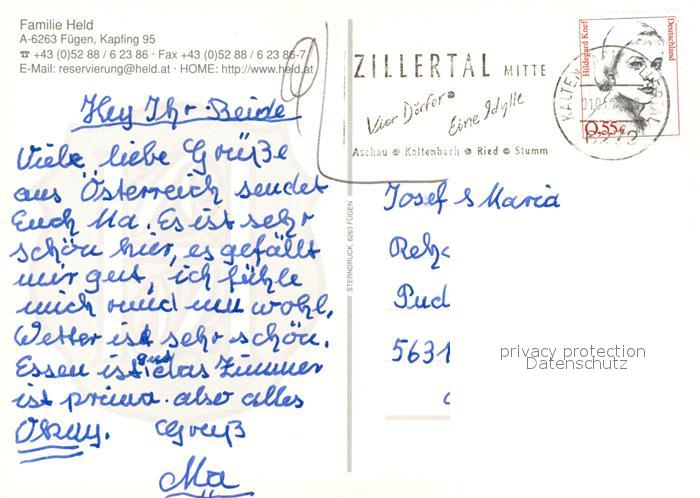 Familie Held
A-6263 Fügen, Kapfing 95
☎ +43 (0)52 88 / 6 23 86 · Fax +43 (0)52 88 / 6 23 86-7
E-Mail: reservierung@held.at · HOME: http://www.held.at
Hey Ihr Beide
Viele liebe Grüße
aus Österreich sendet
Euch Ma. Es ist sehr
schön hier, es gefällt
mir gut, ich fühle
mich rund um wohl.
Wetter ist sehr schön.
Essen ist gut, das Zimmer
ist prima. also alles
Okay. Gruß
Ma
STERNDRUCK, 6263 FÜGEN
ZILLERTAL MITTE
Vier Dörfer
Eine Idylle
Aschau Kaltenbach Ried Stumm
Hildegard Knef
Deutschland
0,55€
6272
Josef & Maria
Reh
Pud
5631
privacy protection
Datenschutz